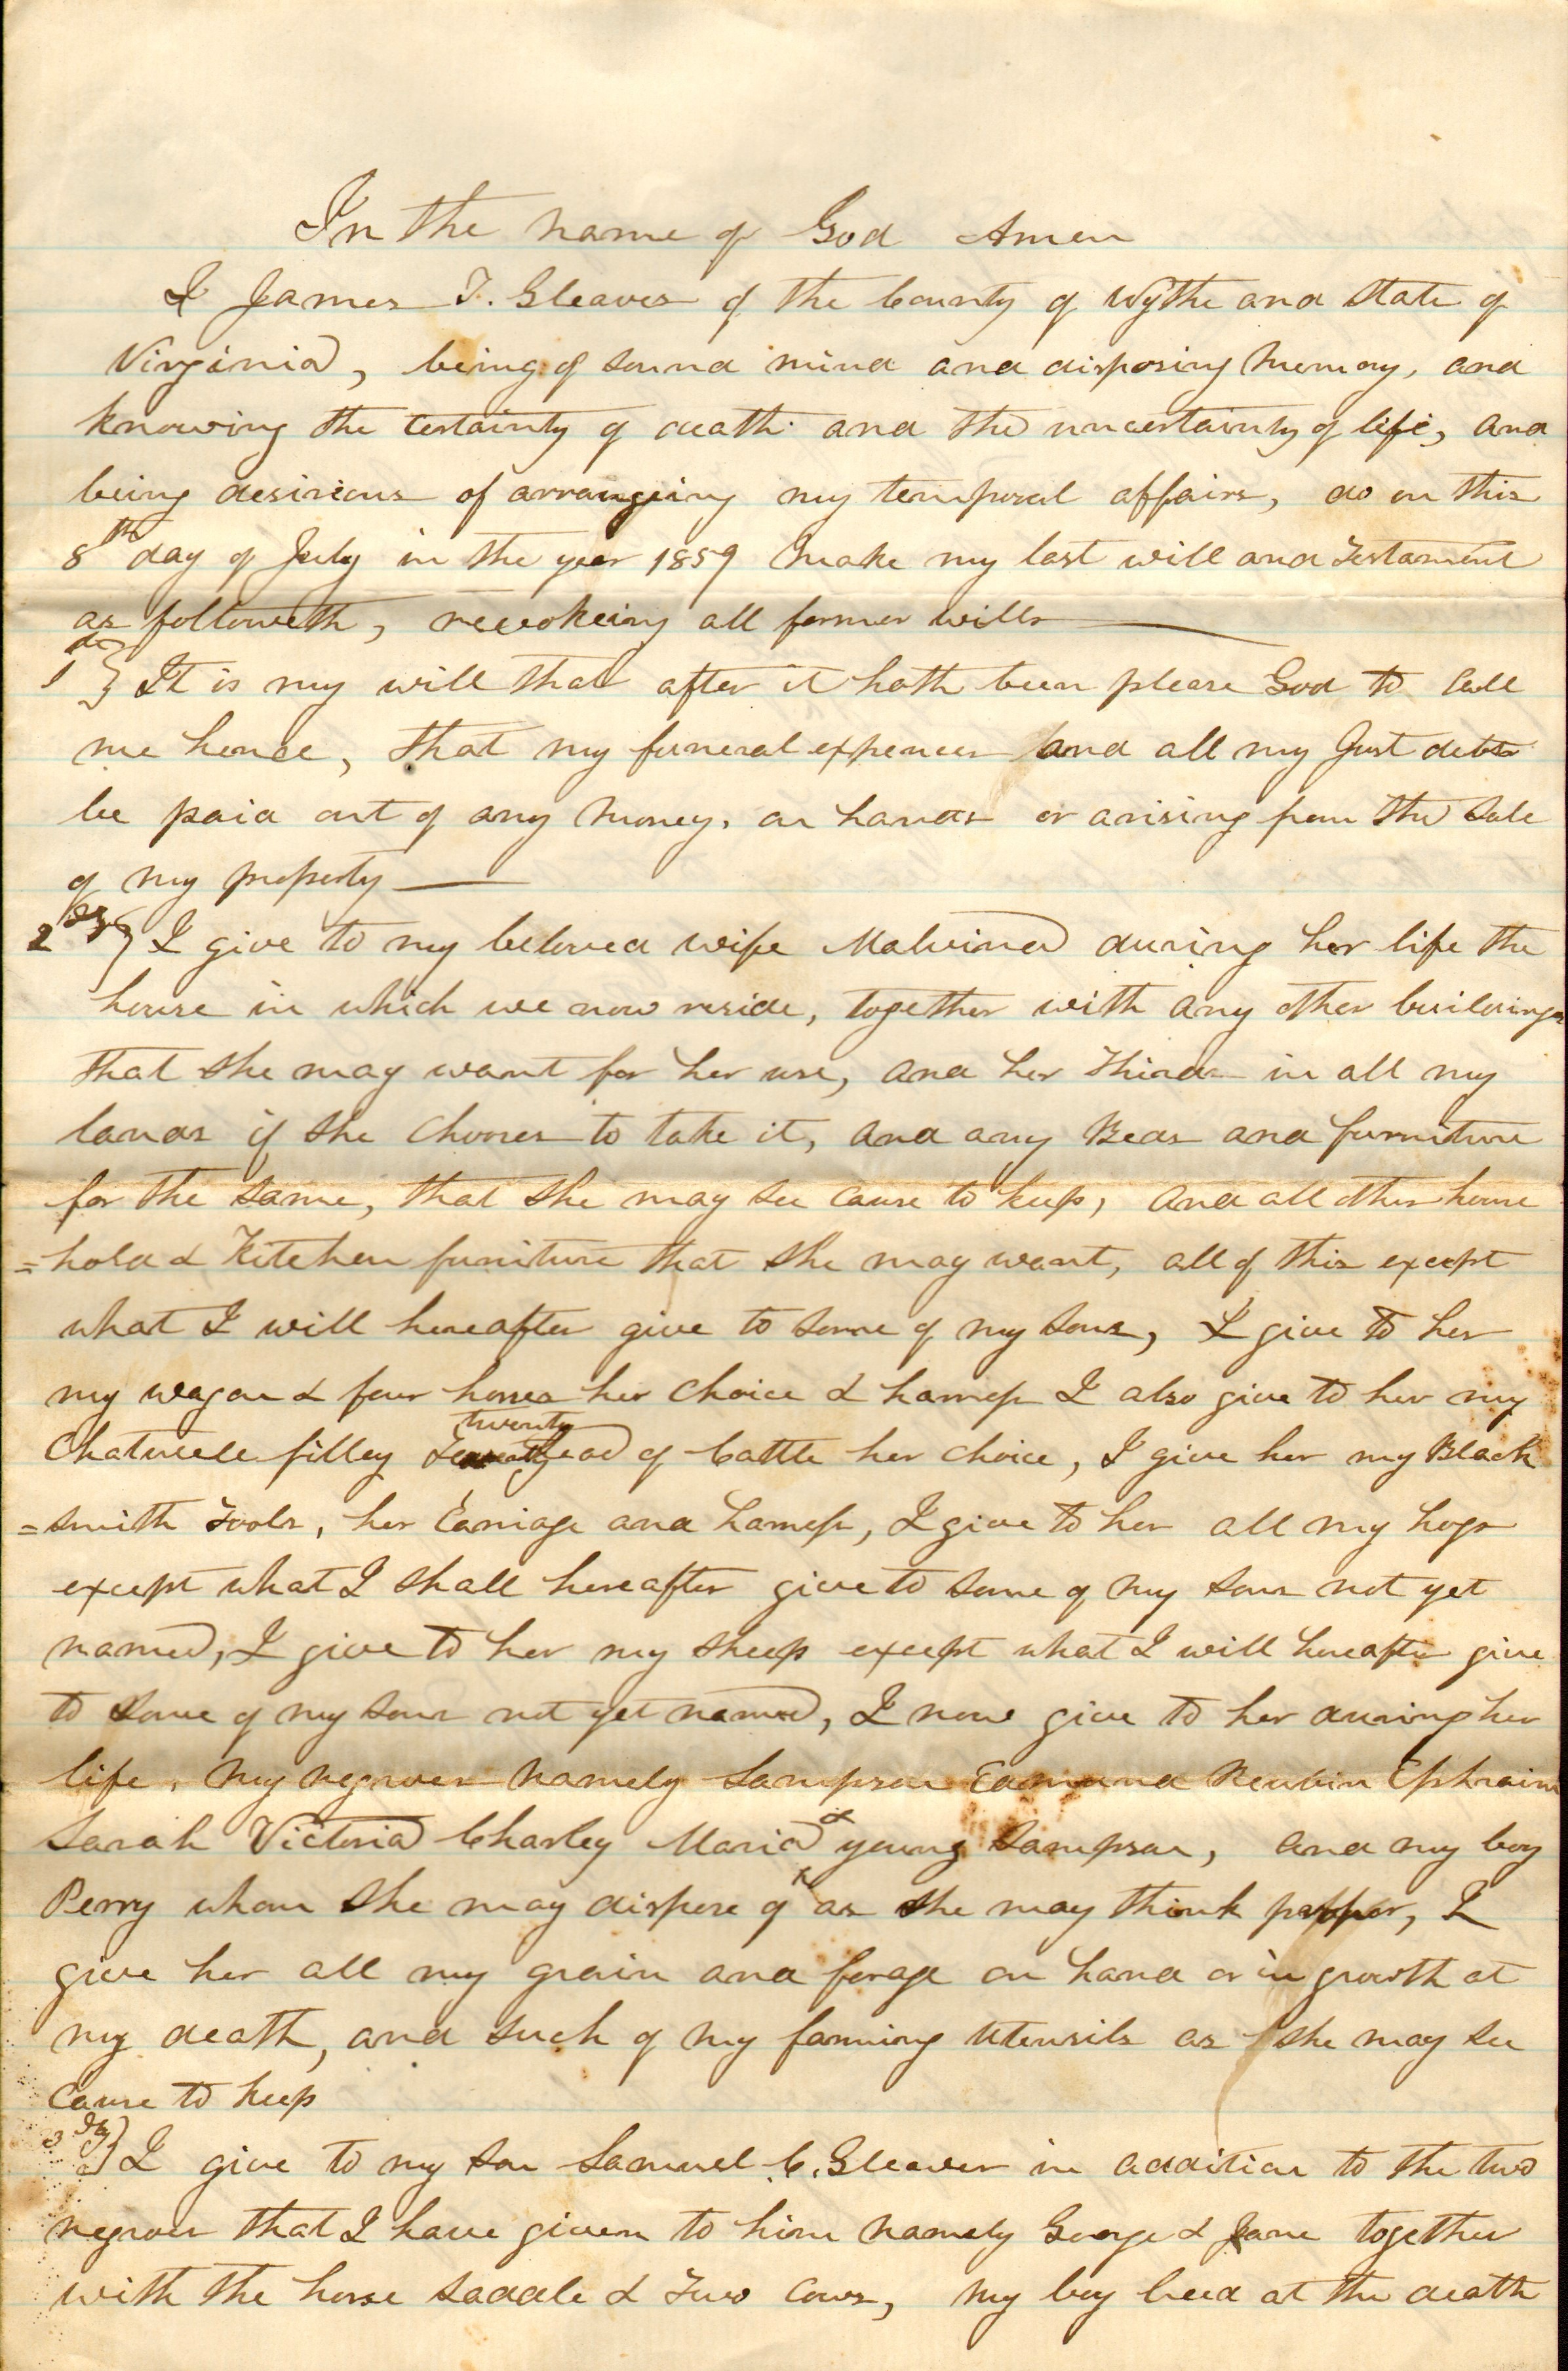 In the name of God Amen
I James T. Gleaves of the County of Wythe and State of
Virginia, being of sound mind and disposing memory, and
knowing the certainty of death and the uncertainty of life, and
being desirious of arrangeing my temporal affairs, do on this
8th day of July in the year 1859 make my last will and Testament
as followeth, revokeing all former wills
1st} It is my will that after it hath been please God to call
me hence, that my funeral expences and all my Just debts
be paid out of any money, on hands or arising from the sale
of my property
2dly} I give to my beloved wife Malvina during her life the
house in which we now reside, together with any other buildings
that she may want for her use, and her Thirds in all my
lands if she chooses to take it, and any Beds and furniture
for the same, that she may see cause to keep, and all other house
=hold & Kitchen furniture that she may want, all of this except
what I will hereafter give to some of my sons, I give to her
my wagon & four horses her choice & harness I also give to her my
filley twenty head of Cattle her choice, I give her my Black
=smith Tools, her Carriage and harness, I give to her all my hogs
except what I shall hereafter give to some of my sons not yet
named, I give to her my sheep except what I will hereafter give
to some of my sons not yet named, I now give to her during her
life, my negroes namely Sampson Edmund Reubin Ephraim
Sarah Victoria Charley Maria & young Sampson, and my boy
Perry whom she may dispose of as she may think propper, I
give her all my grain and forage on hand or in growth at
my death, and such of my farming utensils as she may see
cause to keep
3dly} I give to my son Samuel C. Gleaves in addition to the two
negroes that I have given to him namely George & Jane together
with the horse saddle & Two cows, my boy at the death